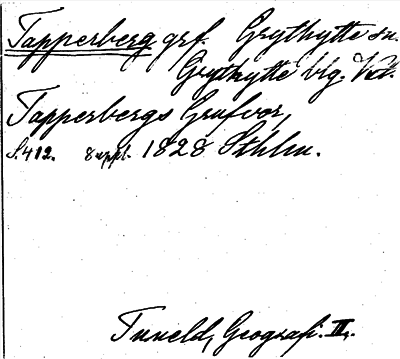 Tapperberg grf. Grythytte sn.
Grythytte blg. Vstl.
Tapperbergs Grufvor,
S. 412. 8 uppl. 1828 Sthlm.
Tuneld, Geografi. III.